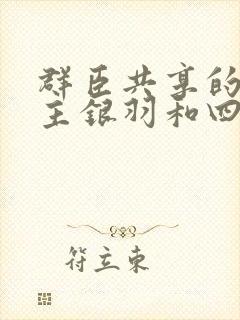 群臣共享的
主银羽和四
符立东